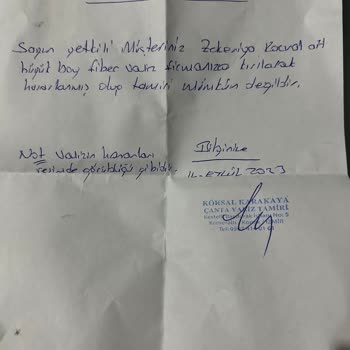 Sayın yetkili Müşteriniz Zekeriya ait
büyük boy fiber valiz firmanızca kırılarak
hasarlanmış olup tamiri mümkün değildir.
Not valizin hasarları Bilginize
resimde görüldüğü gibidir. 14 EYLÜL 2023
KÖRSAL KARAKAYA
ÇANTA VALİZ TAMİRİ